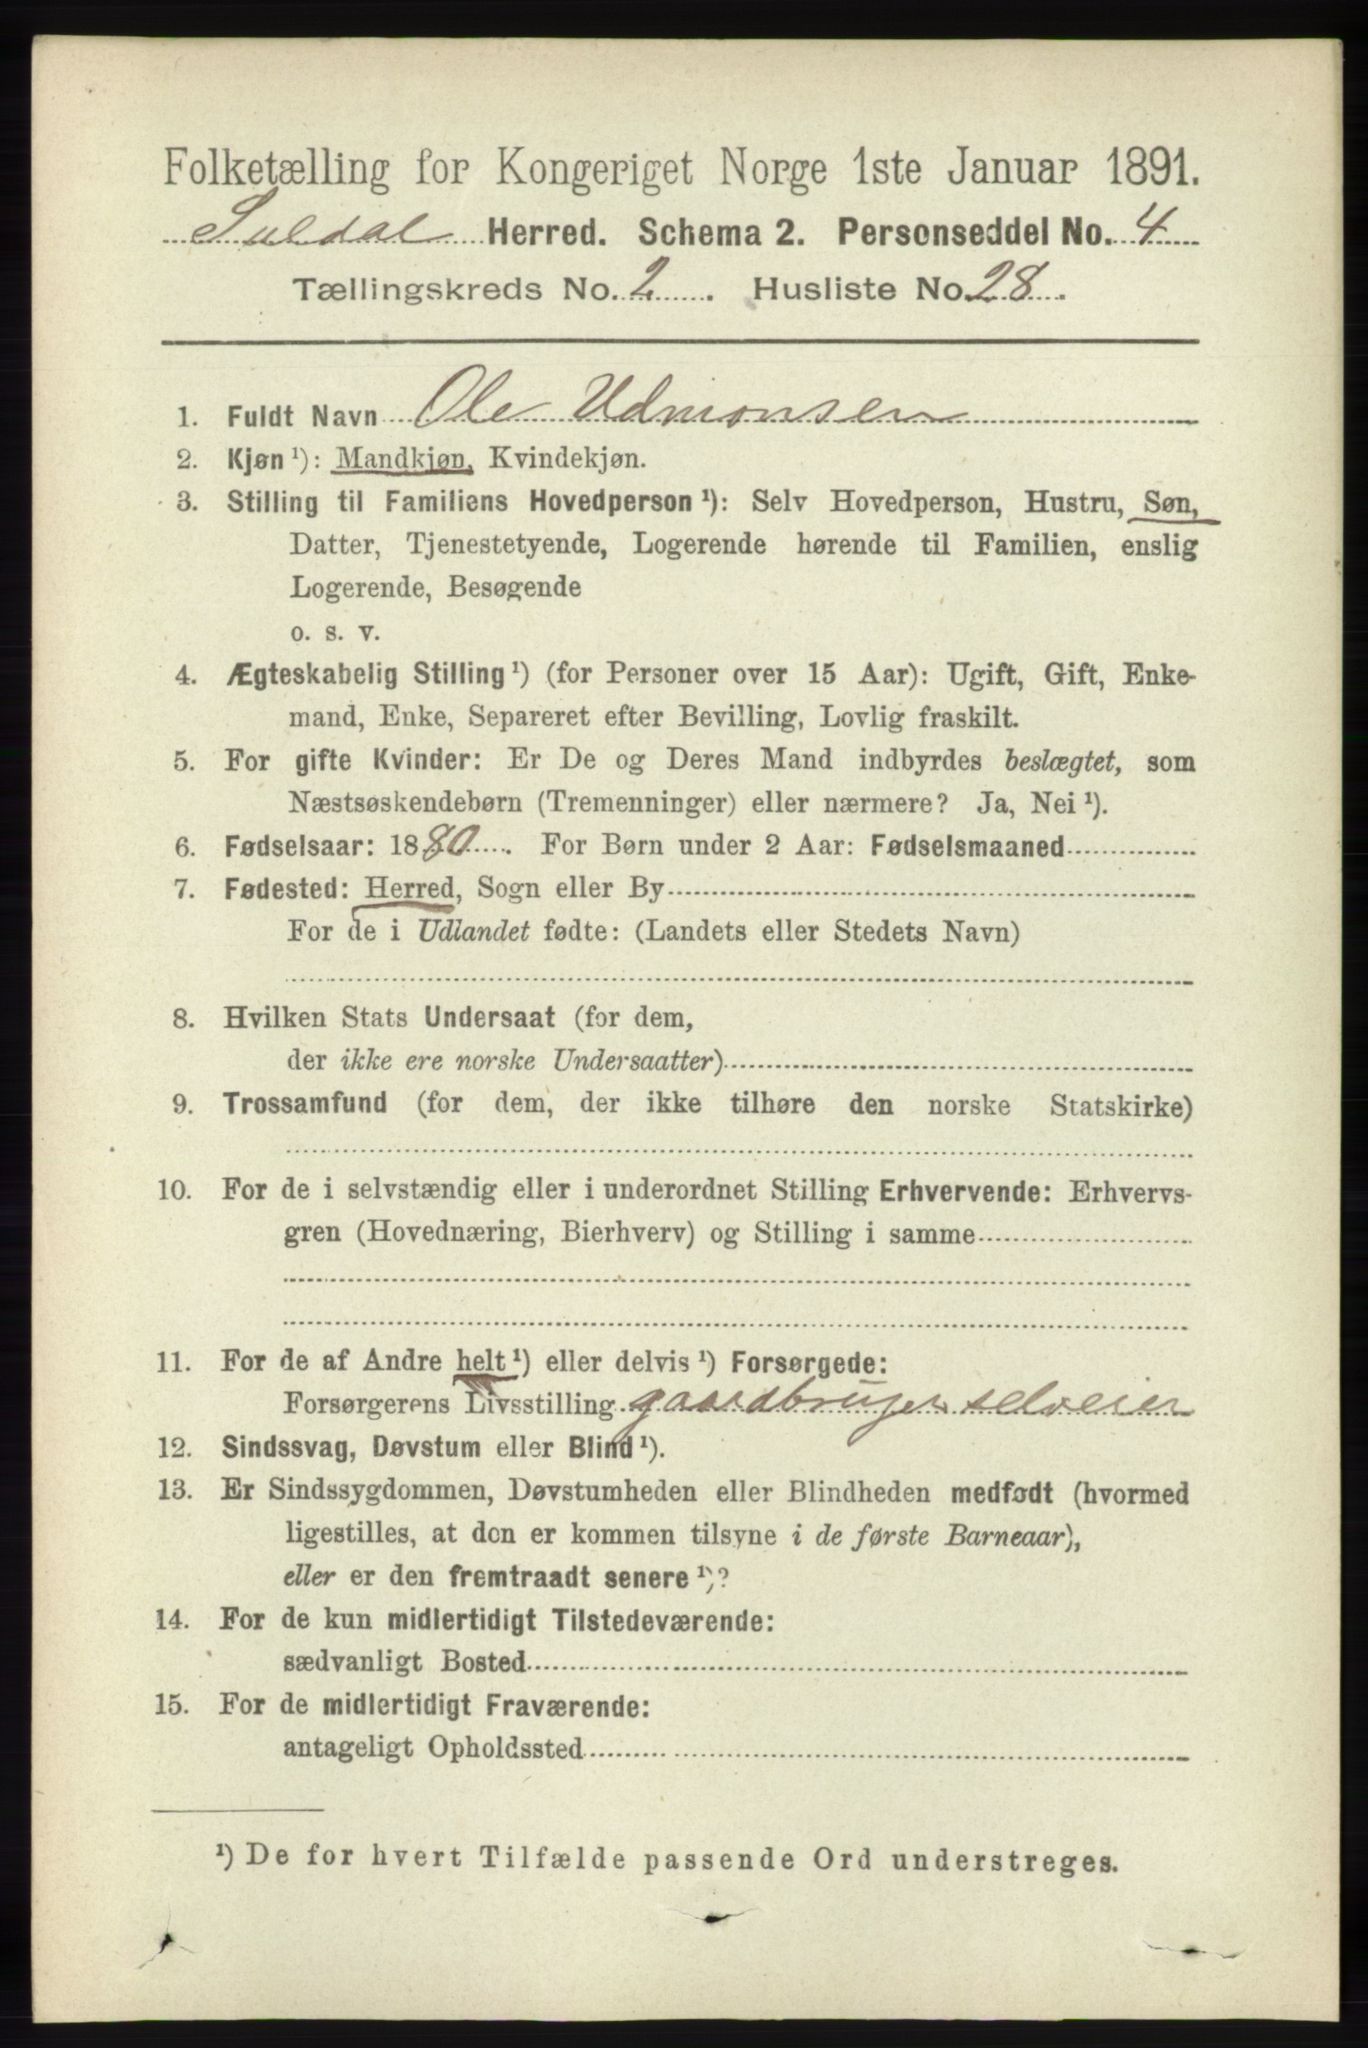 Folketælling for Kongeriget Norge 1ste Januar 1891.
Suldal Herred. Schema 2. Personseddel No. 4
Tællingskreds No. 2. Husliste No. 28.
1. Fuldt Navn Ole Udmonsen
2. Kjøn ¹): Mandkjøn, Kvindekjøn.
3. Stilling til Familiens Hovedperson ¹): Selv Hovedperson, Hustru, Søn,
Datter, Tjenestetyende, Logerende hørende til Familien, enslig
Logerende, Besøgende
o. s. v.
4. Ægteskabelig Stilling ¹) (for Personer over 15 Aar): Ugift, Gift, Enke-
mand, Enke, Separeret efter Bevilling, Lovlig fraskilt.
5. For gifte Kvinder: Er De og Deres Mand indbyrdes beslægtet, som
Næstsøskendebørn (Tremenninger) eller nærmere? Ja, Nei ¹).
6. Fødselsaar: 1880. For Børn under 2 Aar: Fødselsmaaned
7. Fødested: Herred, Sogn eller By
For de i Udlandet fødte: (Landets eller Stedets Navn)
8. Hvilken Stats Undersaat (for dem,
der ikke ere norske Undersaatter)
9. Trossamfund (for dem, der ikke tilhøre den norske Statskirke)
10. For de i selvstændig eller i underordnet Stilling Erhvervende: Erhvervs-
gren (Hovednæring, Bierhverv) og Stilling i samme
11. For de af Andre helt ¹) eller delvis ¹) Forsørgede:
Forsørgerens Livsstilling gaardbruger selveier
12. Sindssvag, Døvstum eller Blind ¹).
13. Er Sindssygdommen, Døvstumheden eller Blindheden medfødt (hvormed
ligestilles, at den er kommen tilsyne i de første Barneaar),
eller er den fremtraadt senere ¹)?
14. For de kun midlertidigt Tilstedeværende:
sædvanligt Bosted
15. For de midlertidigt Fraværende:
antageligt Opholdssted
¹) De for hvert Tilfælde passende Ord understreges.